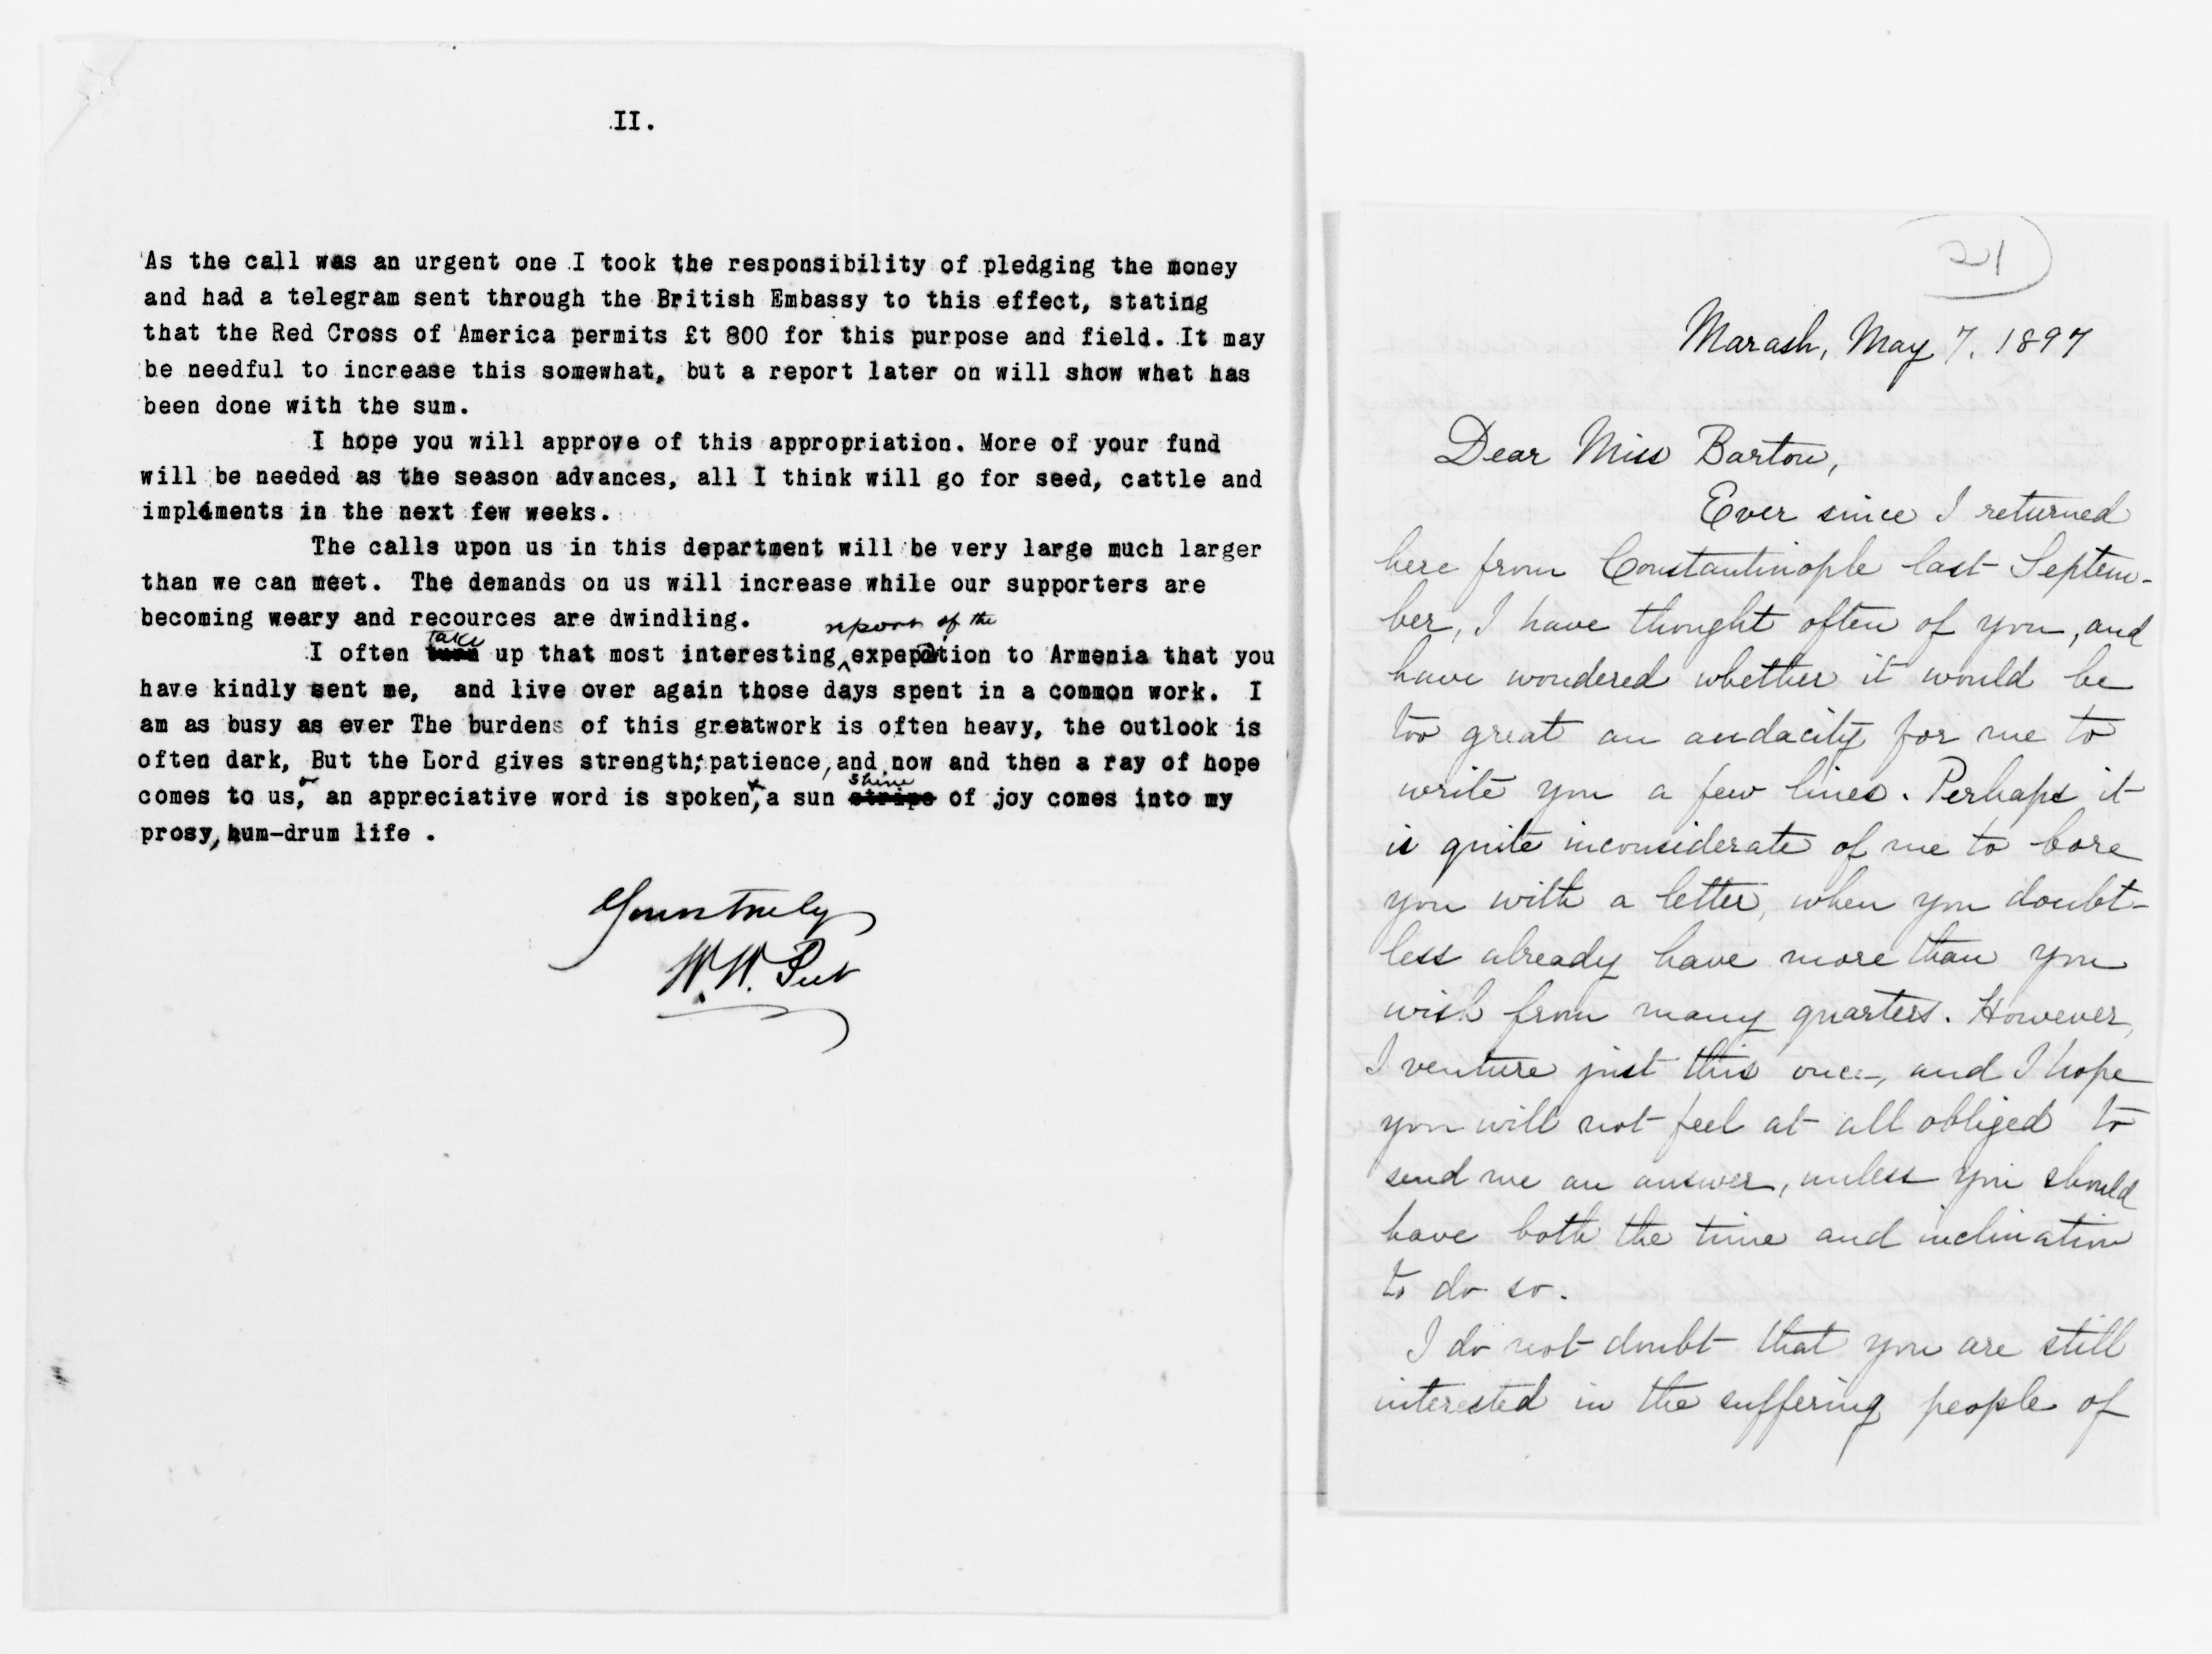 II.
As the call was an urgent one I took the responsibility of pledging the money
and had a telegram sent through the British Embassy to this effect, stating
that the Red Cross of America permits £t 800 for this purpose and field. It may
be needful to increase this somewhat, but a report later on will show what has
been done with the sum.
I hope you will approve of this appropriation. More of your fund
will be needed as the season advances, all I think will go for seed, cattle and
impléments in the next few weeks.
The calls upon us in this department will be very large much larger
than we can meet. The demands on us will increase while our supporters are
becoming weary and recources are dwindling.
I often take up that most interesting report of the expepdtion to Armenia that you
have kindly sent me, and live over again those days spent in a common work. I
am as busy as ever The burdens of this greatwork is often heavy, the outlook is
often dark, But the Lord gives strength, patience, and now and then a ray of hope
comes to us, or an appreciative word is spoken, & a sun shine of joy comes into my
prosy, hum-drum life .
Yours truly
W. W. Peet
21
Marash, May 7. 1897
Dear Miss Barton,
Ever since I returned
here from Constantinople last Septem-
ber, I have thought often of you, and
have wondered whether it would be
too great an audacity for me to
write you a few lines. Perhaps it
is quite inconsiderate of me to bore
you with a letter, when you doubt-
less already have more than you
wish from many quarters. However,
I venture just this once, and I hope
you will not feel at all obliged to
send me an answer, unless you should
have both the time and inclination
to do so.
I do not doubt that you are still
interested in the suffering people of